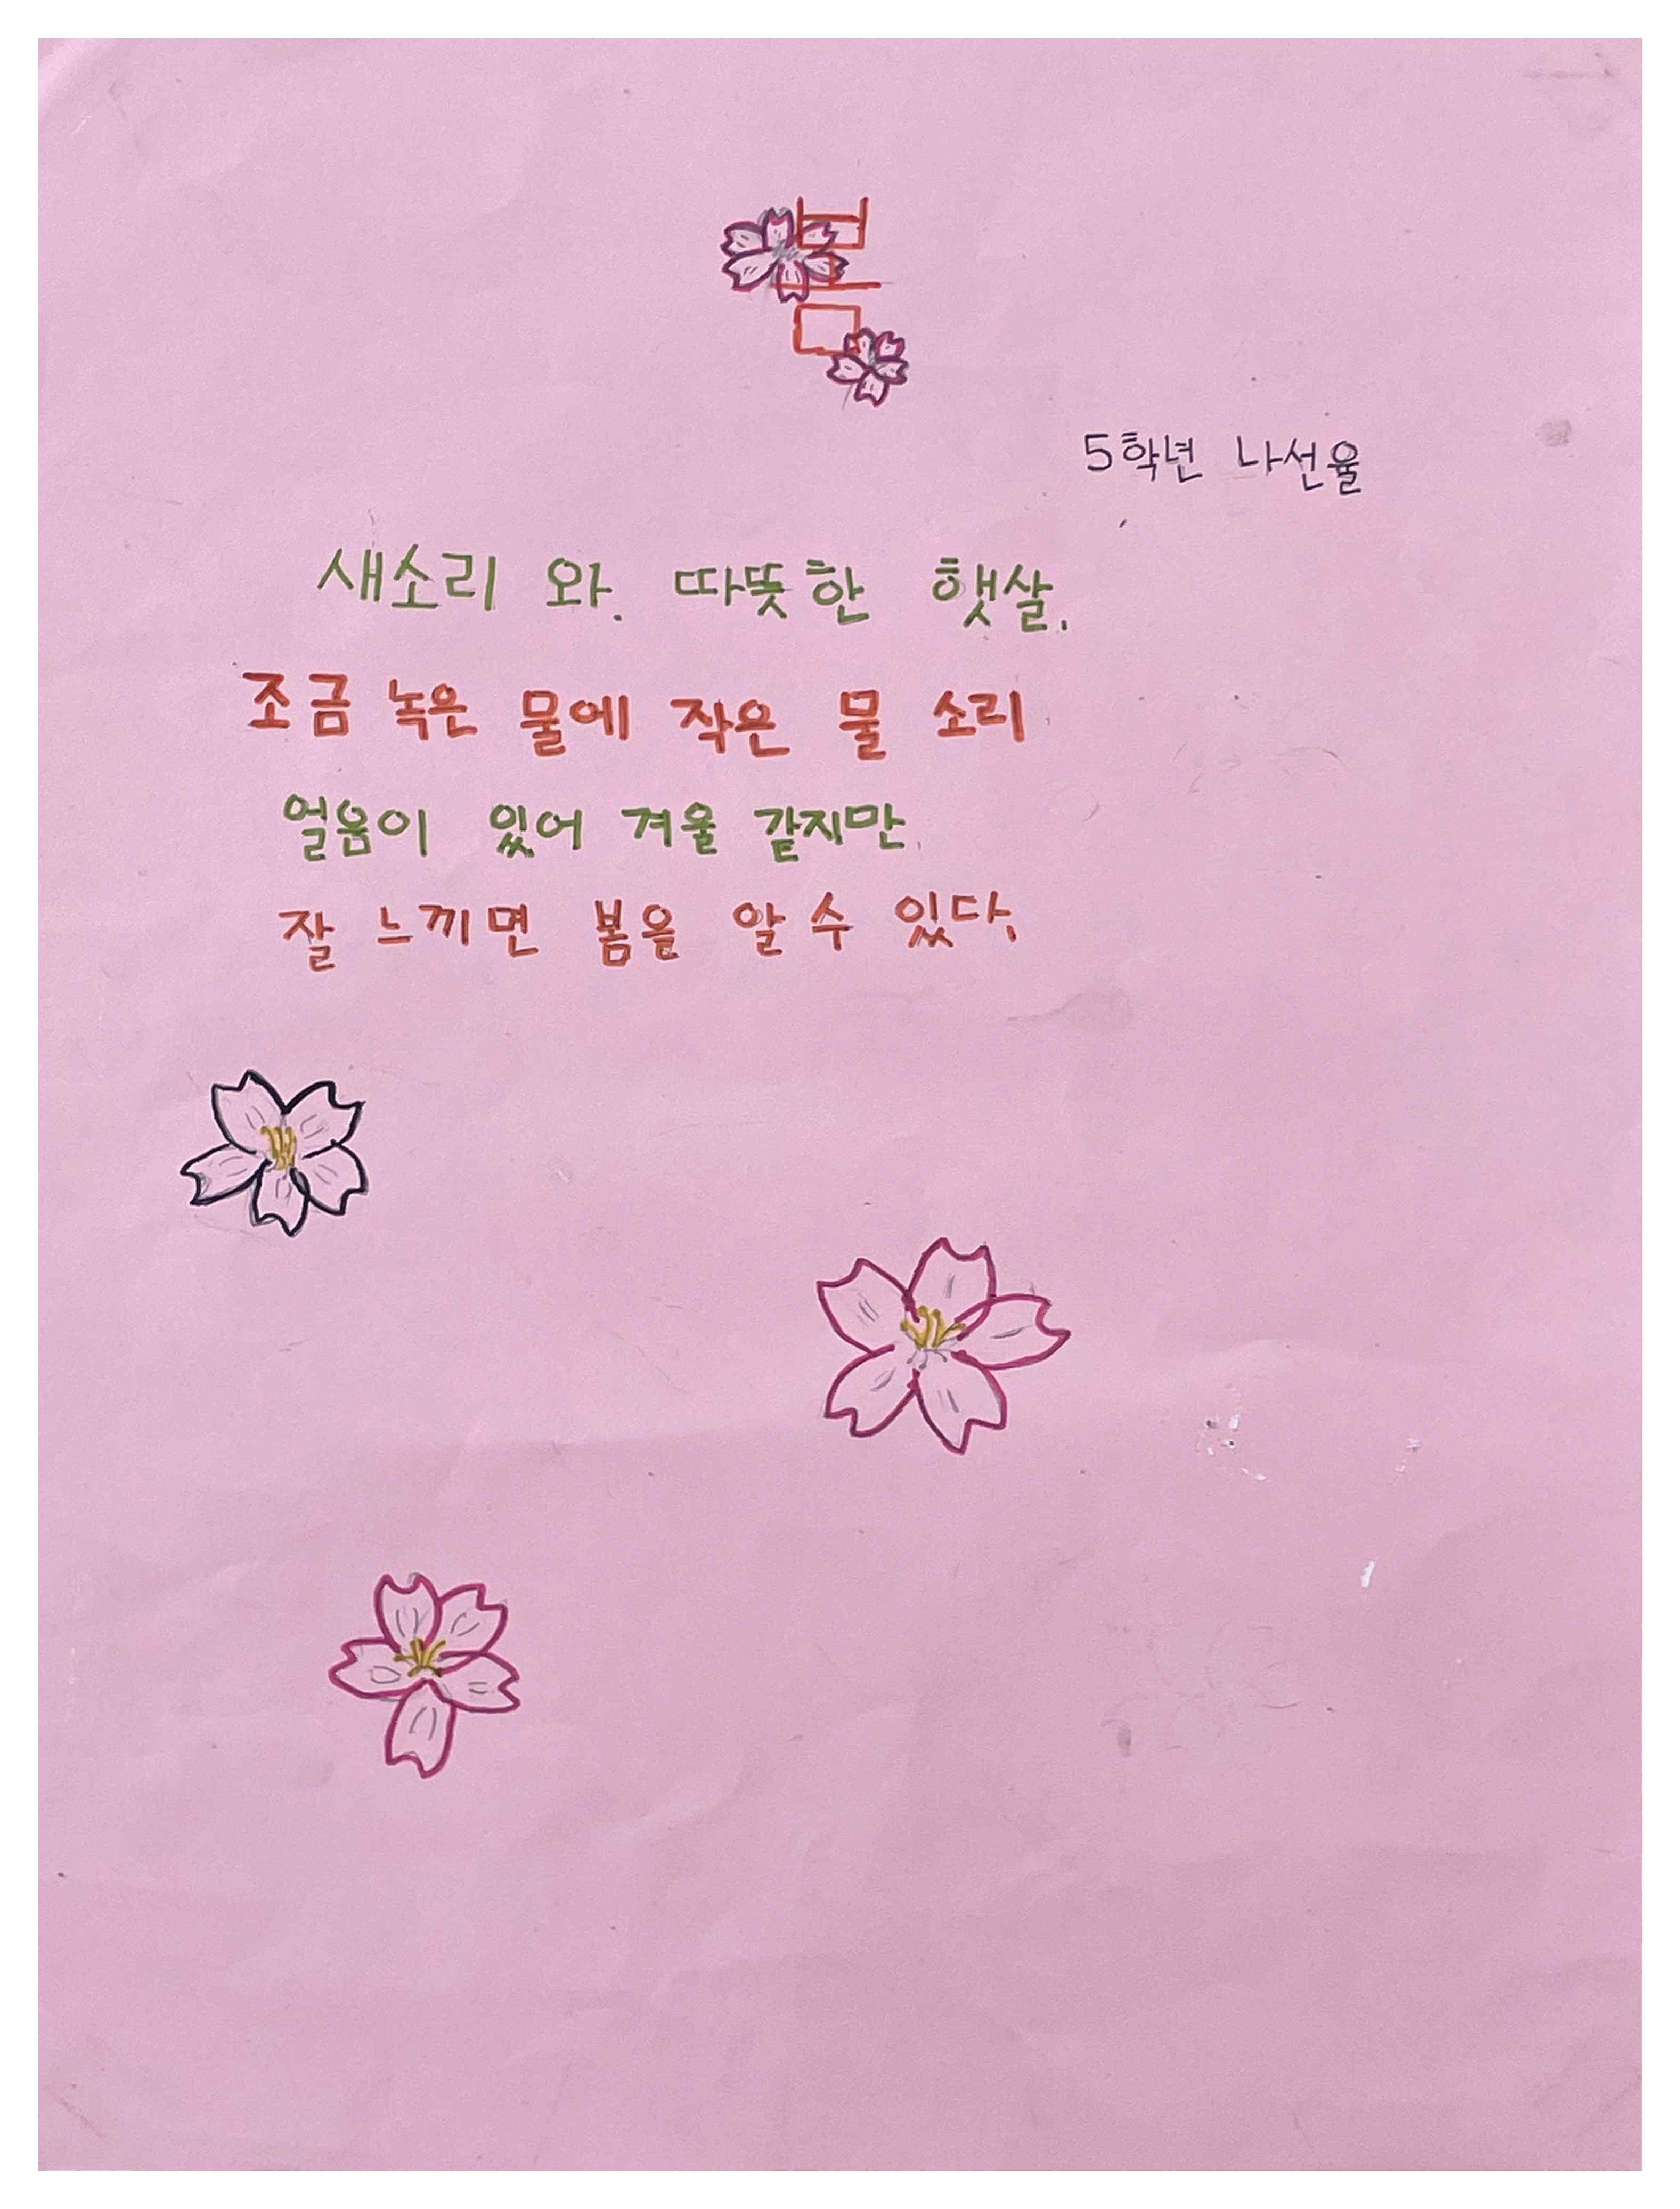 봄
5학년 나선율
새소리 와. 따뜻한 햇살.
조금 녹은 물에 작은 물 소리
얼음이 있어 겨울 같지만.
잘 느끼면 봄을 알 수 있다.